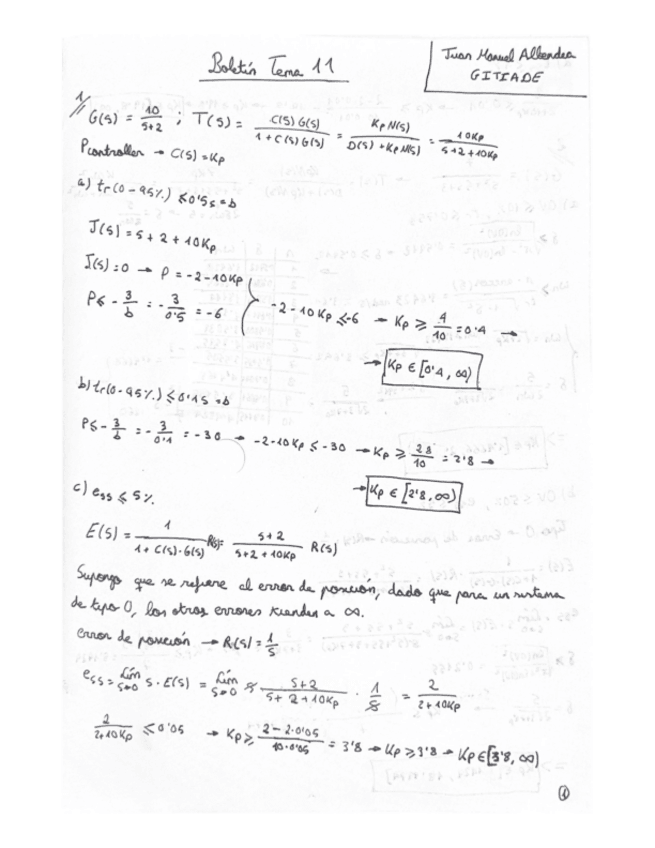 Boletín Tema 11
Juan Manuel Allendea
GITIADE
1// G(s) = 10/(s+2) ; T(s) = C(s)G(s)/(1+C(s)G(s)) = Kp N(s)/(D(s)+Kp N(s)) = 10Kp/(s+2+10Kp)
Pcontroller → C(s) = Kp
a) tr(0-95%) ≤ 0'5s = b
J(s) = s + 2 + 10Kp
J(s) = 0 → P = -2-10Kp
P ≤ -3/b = -3/0'5 = -6
-2-10Kp ≤ -6 → Kp ≥ 4/10 = 0'4 →
→ Kp ∈ [0'4, ∞)
b) tr(0-95%) ≤ 0'1s = b
P ≤ -3/b = -3/0'1 = -30 → -2-10Kp ≤ -30 → Kp ≥ 28/10 = 2'8 →
→ Kp ∈ [2'8, ∞)
c) ess ≤ 5%
E(s) = 1/(1+C(s)·G(s)) R(s) = (s+2)/(s+2+10Kp) R(s)
Supongo que se refiere al error de posición, dado que para un sistema
de tipo 0, los otros errores tienden a ∞.
error de posición → R(s) = 1/s
ess = lim s→0 s·E(s) = lim s→0 s (s+2)/(s+2+10Kp) · 1/s = 2/(2+10Kp)
2/(2+10Kp) ≤ 0'05 → Kp ≥ (2-2·0'05)/(10·0'05) = 3'8 → Kp ≥ 3'8 → Kp ∈ [3'8, ∞)
1